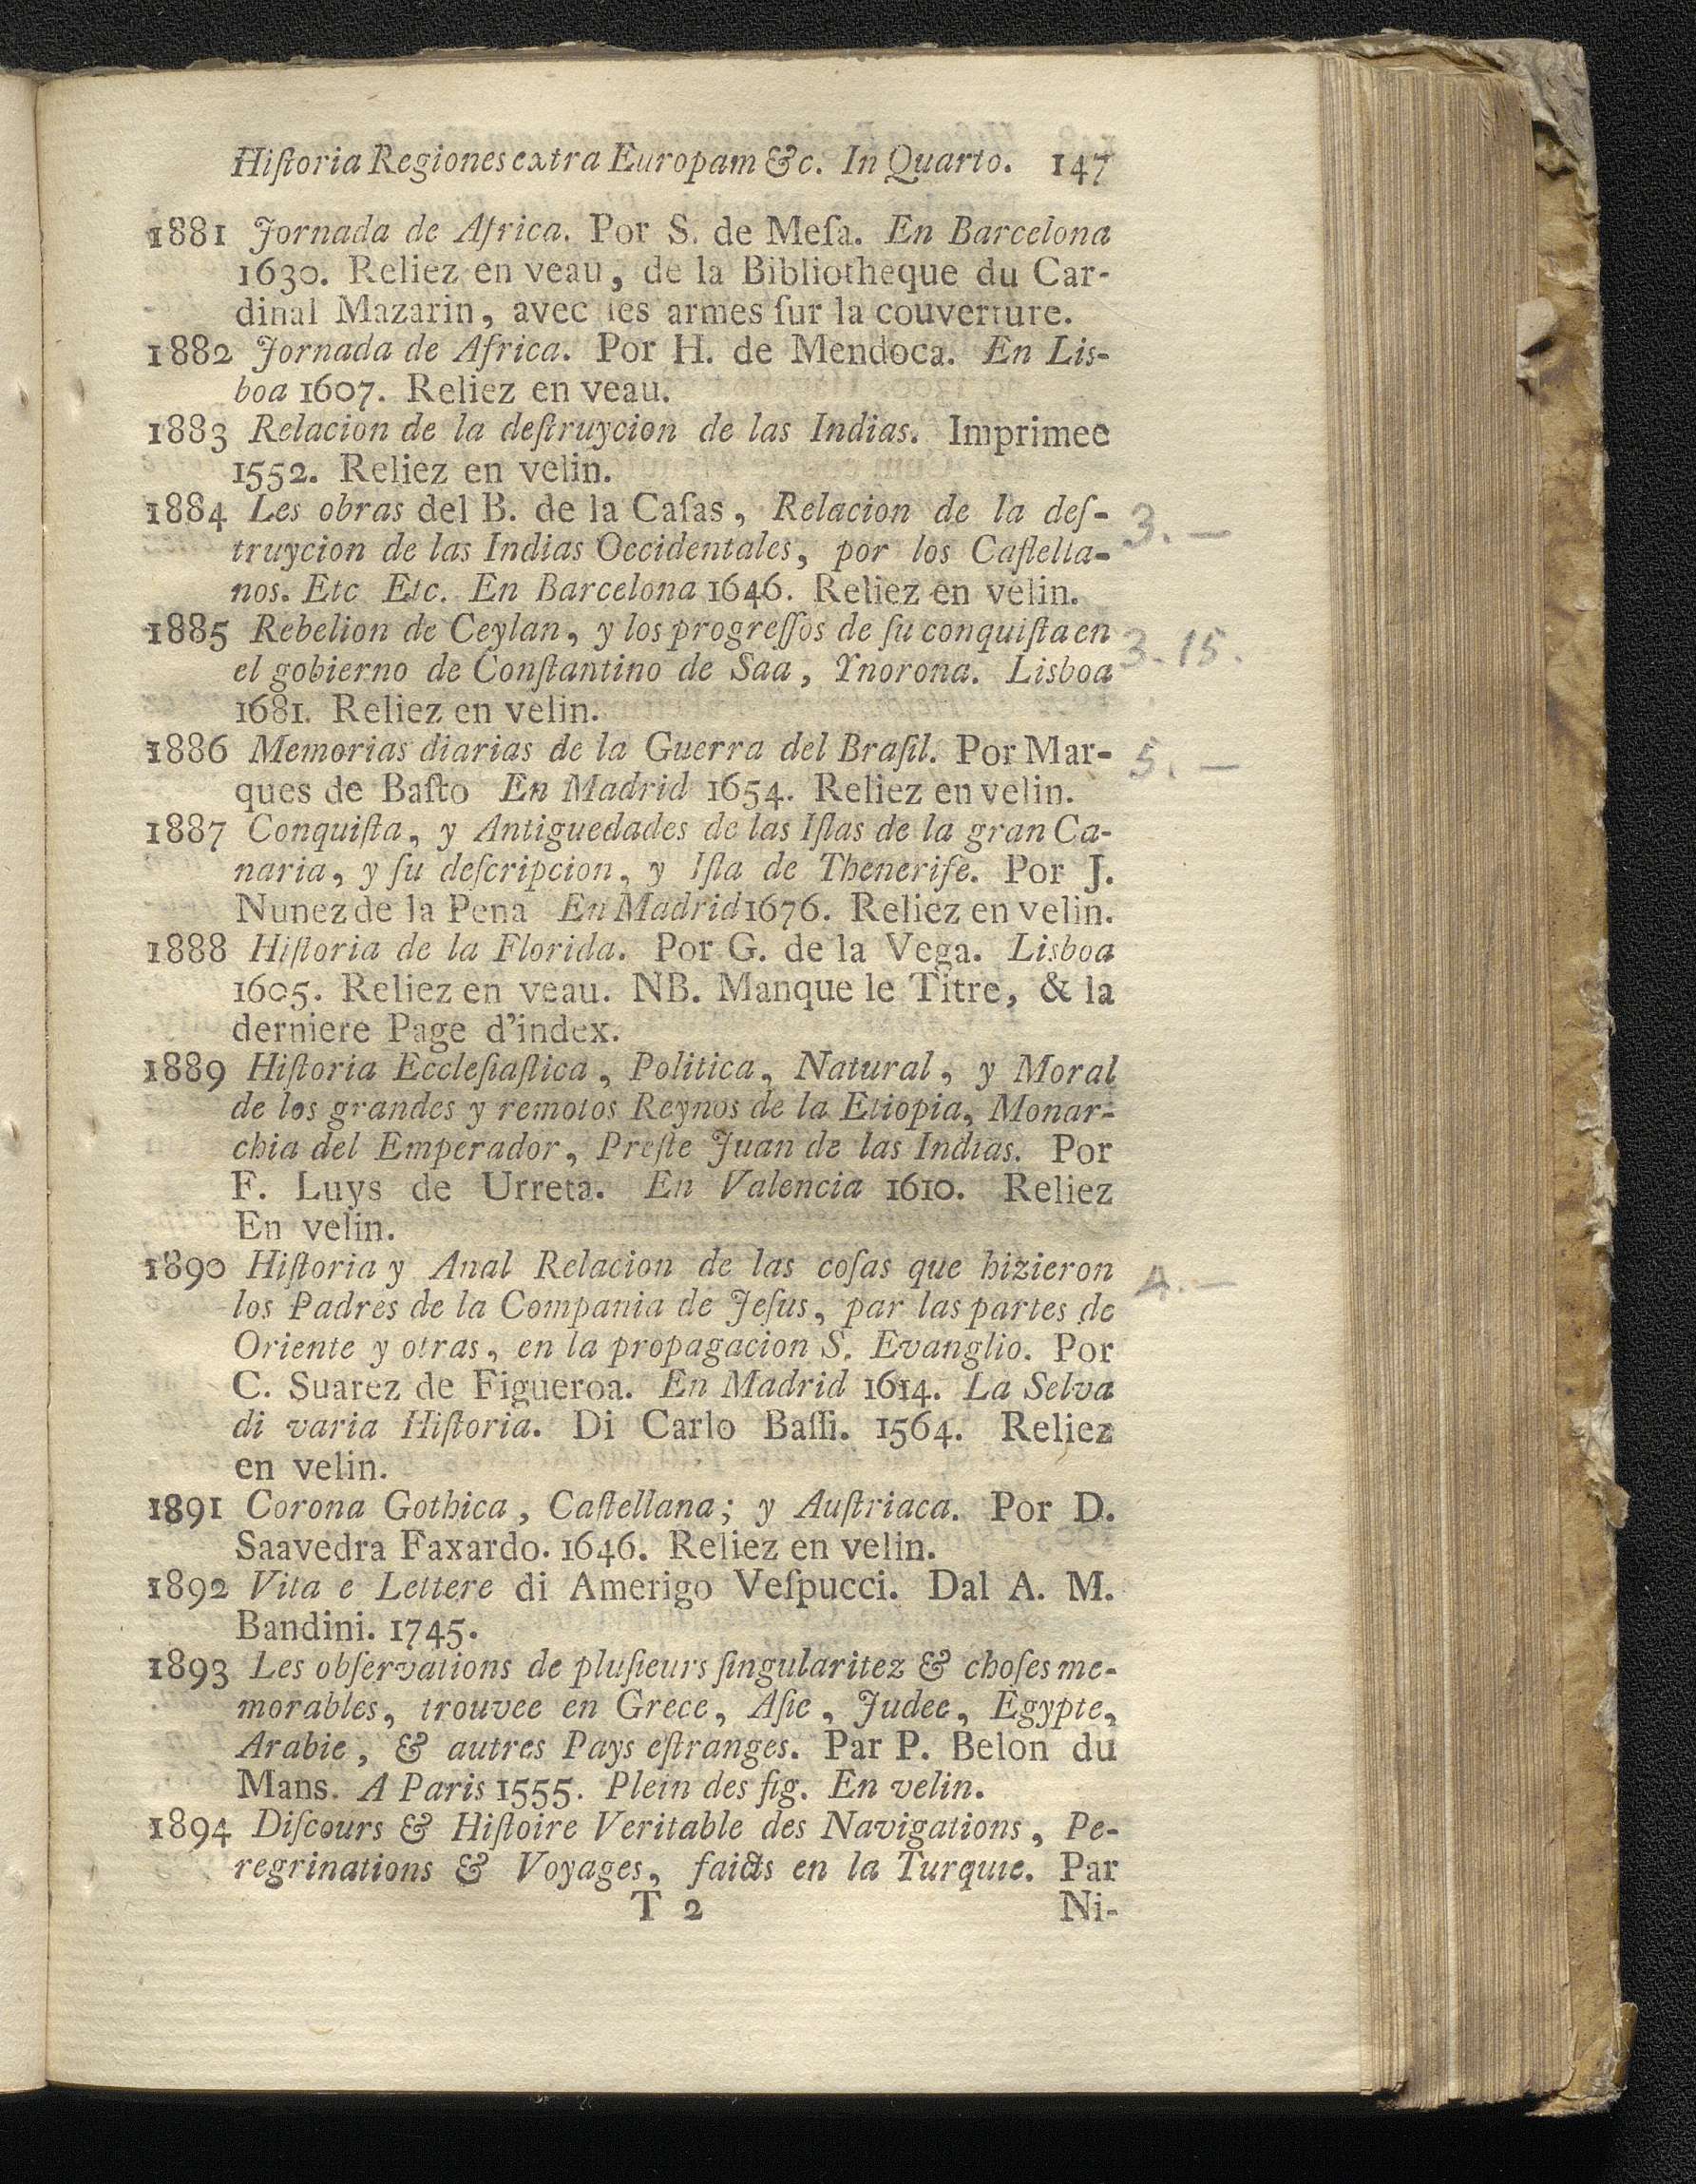 Hiſtoria Regiones extra Europam &c. In Quarto. 147
1881 Jornada de Africa. Por S. de Meſa. En Barcelona
1630. Reliez en veau, de la Bibliotheque du Car-
dinal Mazarin, avec les armes ſur la couverture.
1882 Jornada de Africa. Por H. de Mendoca. En Lis-
boa 1607. Reliez en veau.
1883 Relacion de la deſtruycion de las Indias. Imprimee
1552. Reliez en velin.
1884 Les obras del B. de la Caſas, Relacion de la deſ- 3. —
truycion de las Indias Occidentales, por los Caſtella-
nos. Etc Etc. En Barcelona 1646. Reliez en velin.
1885 Rebelion de Ceylan, y los progreſſos de ſu conquiſta en 3. 15.
el gobierno de Conſtantino de Saa, Ynorona. Lisboa
1681. Reliez en velin.
1886 Memorias diarias de la Guerra del Braſil. Por Mar- 5. —
ques de Baſto En Madrid 1654. Reliez en velin.
1887 Conquiſta, y Antiguedades de las Iſlas de la gran Ca-
naria, y ſu deſcripcion, y Iſla de Thenerife. Por J.
Nunez de la Pena En Madrid 1676. Reliez en velin.
1888 Hiſtoria de la Florida. Por G. de la Vega. Lisboa
1605. Reliez en veau. NB. Manque le Titre, & la
derniere Page d'index.
1889 Hiſtoria Eccleſiaſtica, Politica, Natural, y Moral
de los grandes y remotos Reynos de la Etiopia, Monar-
chia del Emperador, Preſte Juan de las Indias. Por
F. Luys de Urreta. En Valencia 1610. Reliez
En velin.
1890 Hiſtoria y Anal Relacion de las coſas que hizieron 4. —
los Padres de la Compania de Jeſus, par las partes de
Oriente y otras, en la propagacion S. Evanglio. Por
C. Suarez de Figueroa. En Madrid 1614. La Selva
di varia Hiſtoria. Di Carlo Baſſi. 1564. Reliez
en velin.
1891 Corona Gothica, Caſtellana; y Auſtriaca. Por D.
Saavedra Faxardo. 1646. Reliez en velin.
1892 Vita e Lettere di Amerigo Veſpucci. Dal A. M.
Bandini. 1745.
1893 Les obſervations de pluſieurs ſingularitez & choſes me-
morables, trouvee en Grece, Aſie, Judee, Egypte,
Arabie, & autres Pays eſtranges. Par P. Belon du
Mans. A Paris 1555. Plein des fig. En velin.
1894 Diſcours & Hiſtoire Veritable des Navigations, Pe-
regrinations & Voyages, faicts en la Turquie. Par
T 2 Ni-